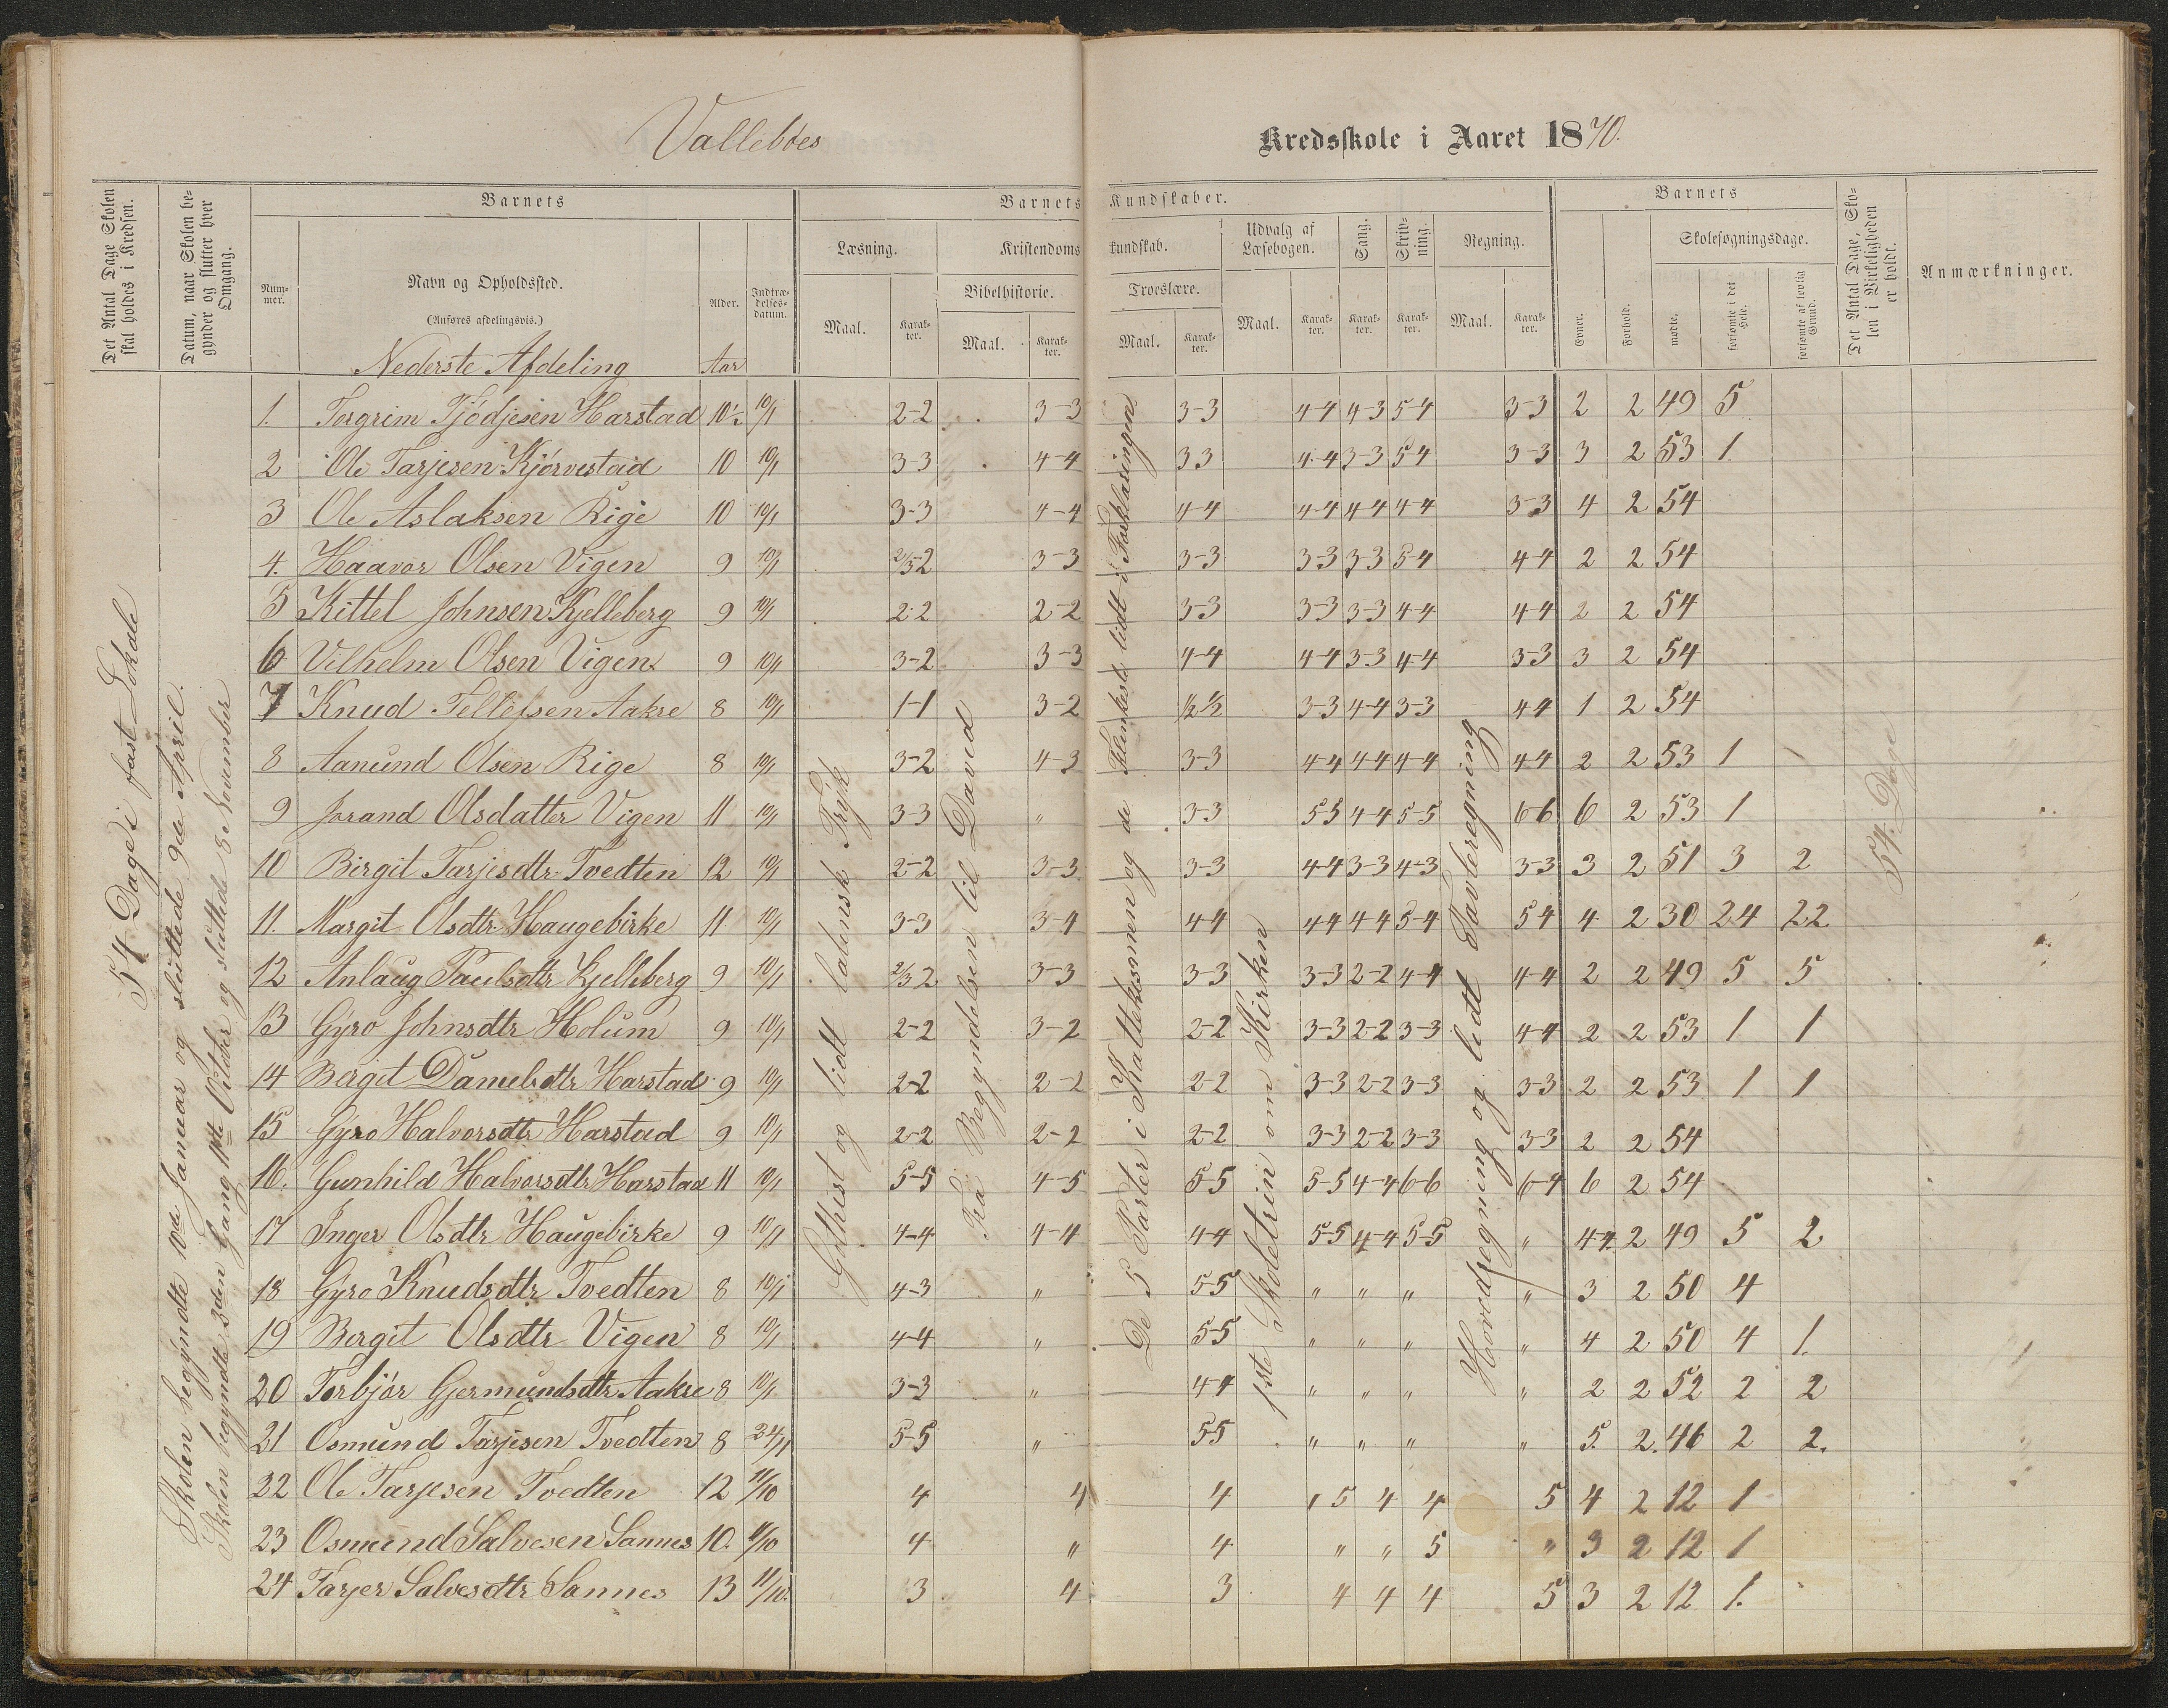 Vallebøes
Kredsskole i Aaret 1870.
Det Antal Dage Skolen skal holdes i Kredsen.
Datum, naar Skolen begynder og slutter hver Omgang.
Barnets
Nummer.
Navn og Opholdssted.
(Anføres afdelingsvis.)
Alder.
Indtrædelsesdatum.
Barnets Kundskaber.
Læsning.
Kristendomskundskab.
Udvalg af Læsebogen.
Sang.
Skrivning.
Regning.
Bibelhistorie.
Troeslære.
Maal. Karakter. Maal. Karakter. Maal. Karakter. Maal. Karakter. Karakter. Karakter. Maal. Karakter.
Barnets
Evner.
Forhold.
Skolesøgningsdage.
mødte.
forsømte i det Hele.
forsømte af lovlig Grund.
Det Antal Dage, Skolen i Virkeligheden er holdt.
Anmærkninger.
Nederste Afdeling Aar
54 Dage i fast Lokale
Skolen begyndte 10de Januar og sluttede 9de April.
Skolen begyndte 3den Gang 11te Octber og sluttede 8 November
Gothisk og lidt latinsk Tryk
Fra Begyndelsen til David
De 5 Parter i Kattekismen og de flinkeste lidt i Forklaringen
1ste Skoletrin om Kirken
Hovedregning og lidt Tavleregning
54 Dage
1. Torgrim Tjødjesen Harstad 10½ 10/1 2-2 3-3 3-3 4-4 4-3 5-4 3-3 2 2 49 5
2 Ole Tarjesen Kjørvestad 10 10/1 3-3 4-4 3 3 4-4 3-3 5 4 3-3 3 2 53 1.
3 Ole Aslaksen Rige 10 10/1 3-3 4-4 4-4 4-4 4 4 4-4 3-3 4 2 54
4. Haavor Olsen Vigen 9 10/1 2/3-2 3-3 3-3 3-3 3-3 5-4 4-4 2 2 54
5 Kittel Johnsen Kjelleberg 9 10/1 2-2 2-2 3-3 3-3 3-3 4-4 4-4 2 2 54
6 Vilhelm Olsen Vigen 9 10/1 3-2 3-3 4-4 4-4 3-3 4-4 3-3 3 2 54
7 Knud Tellefsen Aakre 8 10/1 1-1 3-2 ½ ½ 3-3 4-4 3-3 4 4 1 2 54
8 Aanund Olsen Rige 8 10/1 3-2 4-3 3-3 4 4 4 4 4-4 4-4 2 2 53 1
9 Jorand Olsdatter Vigen 11 10/1 3-3 " 3-3 5 5 4-4 5-5 6-6 6 2 53 1
10 Birgit Tarjesdtr Tvedten 12 10/1 2-2 3-3 3-3 4-4 3-3 4-3 3-3 3 2 51 3 2
11. Margit Olsdtr Haugebirke 11 10/1 3-3 3-4 4-4 4 4 4 4 5-4 5 4 4 2 30 24 22
12 Anlaug Paulsdtr Kjelleberg 9 10/1 2/3 2 3-3 3-3 3-3 2-2 4-4 4-4 2 2 49 5 5
13 Gyro Johnsdtr Holum 9 10/1 2-2 3-2 2-2 3-3 2-2 3-3 4-4 2 2 53 1 1
14 Bergit Danielsdtr Harstad 9 10/1 2-2 2-2 2-2 3-3 2-2 3-3 3-3 2 2 53 1 1
15 Gyro Halvorsdtr Harstad 9 10/1 2-2 2-2 2-2 3-3 2-2 3-3 3-3 2 2 54
16. Gunhild Halvorsdtr Harstad 11 10/1 5-5 4-5 5-5 5-5 4-4 6-6 6-4 6 2 54
17 Inger Olsdtr Haugebirke 9 10/1 4-4 4-4 4-4 5-5 4-4 5-5 " 4-4. 2 49 5 2
18 Gyro Knudsdtr Tvedten 8 10/1 4-3 " 5-5 " " " " 3 2 50 4
19 Bergit Olsdtr Vigen 8 10/1 4-4 " 5-5 " " " " 4 2 50 4 1.
20 Torbjør Gjermundsdtr Aakre 8 10/1 3-3 " 4-4 " " " " 2 2 52 2 2
21 Osmund Tarjesen Tvedten 8 24/1 5-5 " 5-5 " " " " 5. 2. 46 2 2.
22 Ole Tarjesen Tvedten 12 11/10 4 4 4 5 4 4 5 4 2 12 1
23 Osmund Salvesen Sannes 10. 11/10 4 " 4 " " 5 " 3 2 12 1
24 Tarjer Salvesdtr Sannes 13 11/10. 3 4 3 4 4 4 5 3 2 12 1.